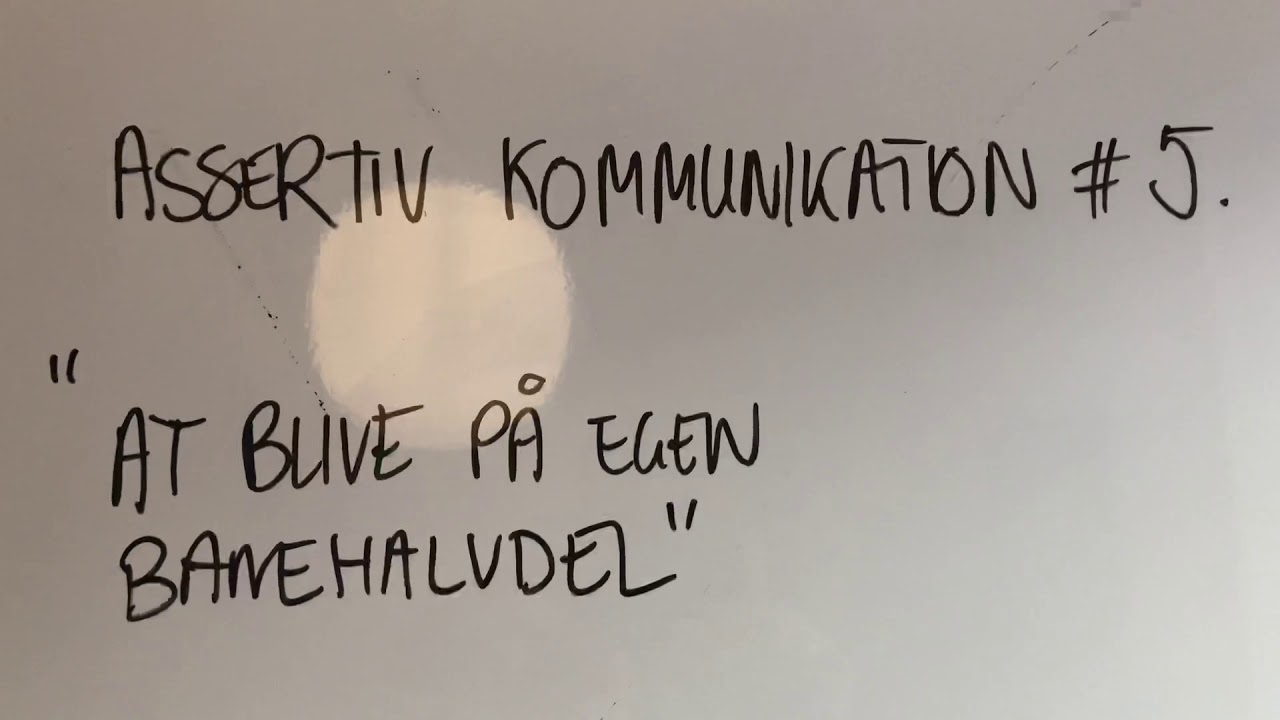 ASSERTIV KOMMUNIKATION # 5.
"AT BLIVE PÅ EGEN
BANEHALVDEL"